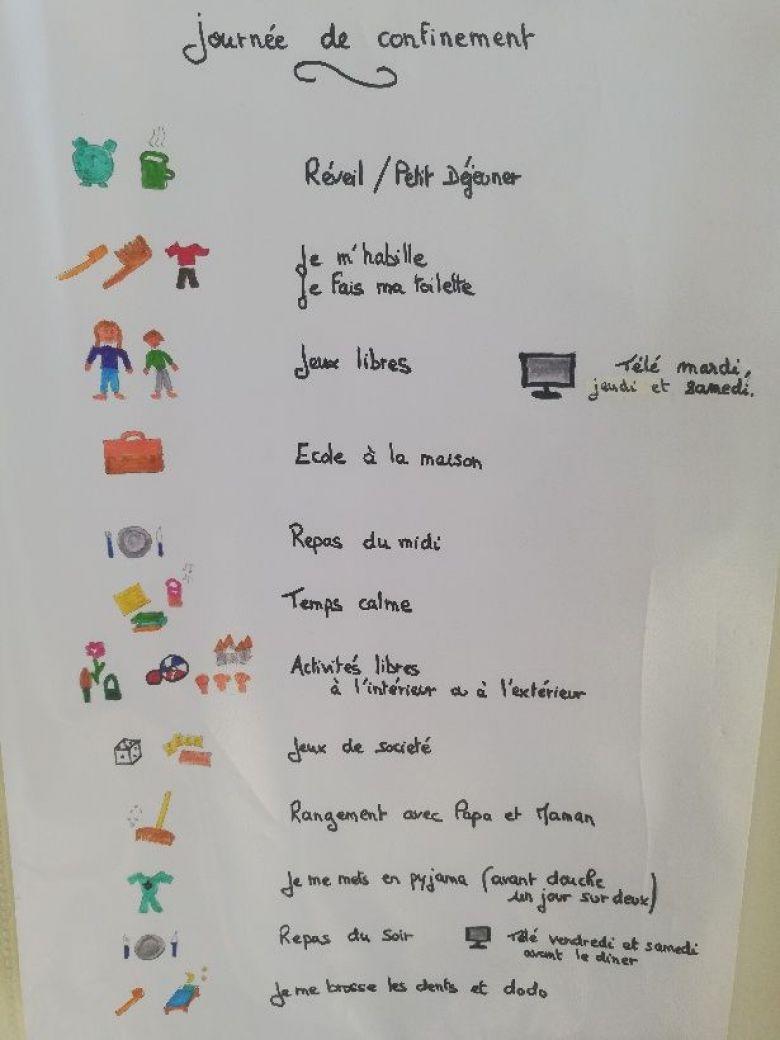 Journée de confinement
Réveil / Petit Déjeuner
Je m'habille
Je fais ma toilette
Jeux libres
Télé mardi,
jeudi et samedi.
Ecole à la maison
Repas du midi
Temps calme
Activités libres
à l'intérieur ou à l'extérieur
Jeux de societé
Rangement avec Papa et Maman
Je me mets en pyjama (avant douche
un jour sur deux)
Repas du soir
Télé vendredi et samedi
avant le dîner
Je me brosse les dents et dodo